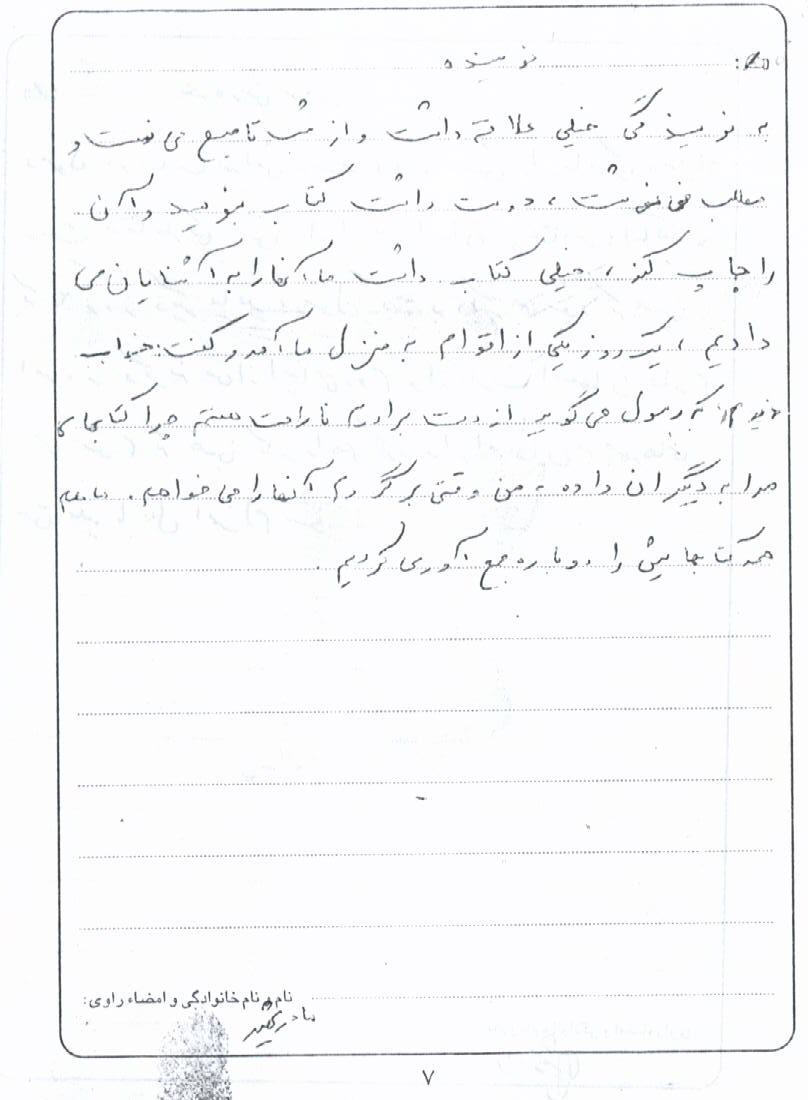 نویسنده
به نویسندگی خیلی علاقه داشت و از شب تا صبح می نشست و
مطلب می نوشت ، دوست داشت کتاب بنویسد و آن
را چاپ کند ، خیلی کتاب داشت ما آنها را به آشنایان می
دادیم ، یک روز یکی از اقوام به منزل ما آمد و گفت: خواب
دیدم که رسول می گوید از دست برادرم ناراحت هستم چرا کتابهای
مرا به دیگران داده ، من وقتی برگردم آنها را می خواهم . ما هم
همه کتابهایش را دوباره جمع آوری کردیم .
نام و نام خانوادگی و امضاء راوی:
مادر شهید
۷